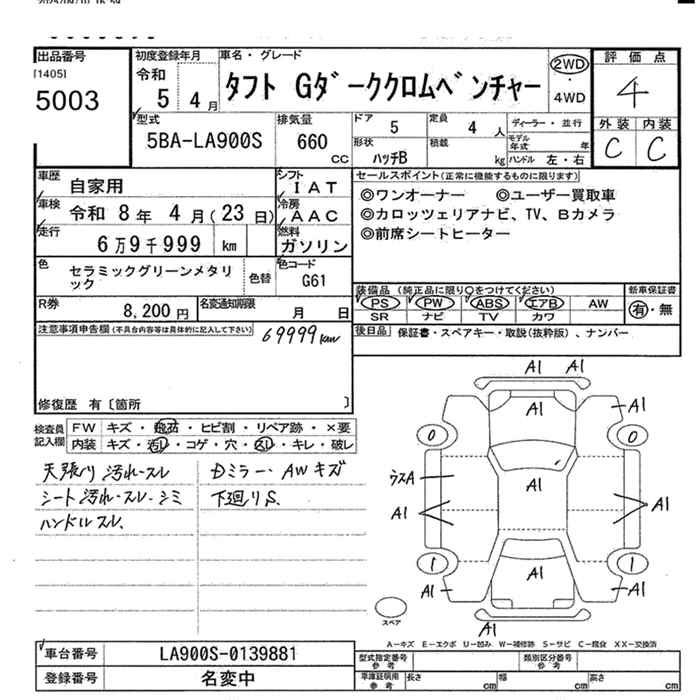 出品番号
[1405]
5003
初度登録年月
令和
5 4 月
車名・グレード
タフト Gダーククロムベンチャー
2WD
・
4WD
評価点
4
外装 内装
C C
型式
5BA-LA900S
排気量
660
CC
ドア
5
定員
4 人
形状
ハッチB
積載
kg
ディーラー・並行
モデル
年式 年
ハンドル 左・右
車歴
自家用
シフト
IAT
車検
令和 8 年 4 月(23 日)
冷房
AAC
走行
6 万 9 千 999 km
燃料
ガソリン
色
セラミックグリーンメタリ
ック
色替
色コード
G61
R券
8,200 円
名変通知期限
月 日
セールスポイント(正常に機能するものに限ります)
◎ワンオーナー ◎ユーザー買取車
◎カロッツェリアナビ、TV、Bカメラ
◎前席シートヒーター
装備品 (純正品に限り○をつけてください)
PS PW ABS エアB AW
SR ナビ TV カワ
新車保証書
有・無
後日品
保証書・スペアキー・取説(抜粋版)、ナンバー
注意事項申告欄(不具合内容等は具体的に記入して下さい)
69999km
修復歴 有〔箇所 〕
検査員
記入欄
FW キズ・飛石・ヒビ割・リペア跡・×要
内装 キズ・汚レ・コゲ・穴・スレ・キレ・破レ
天張り汚れ・スレ
シート汚れ・スレ・シミ
ハンドルスレ、
Dミラー・AWキズ
下廻りS.
A1 A1
A1
A1
A1
0
0
ウスA
A1
A1
A1
1
1
A1
A1
A1
A1
スペア
A－キズ E－エクボ U－凹み W－補修跡 S－サビ C－腐食 XX－交換済
車台番号
LA900S-0139881
登録番号
名変中
型式指定番号
参考
類別区分番号
参考
車庫証明用
参考
長さ cm
幅 cm
高さ cm